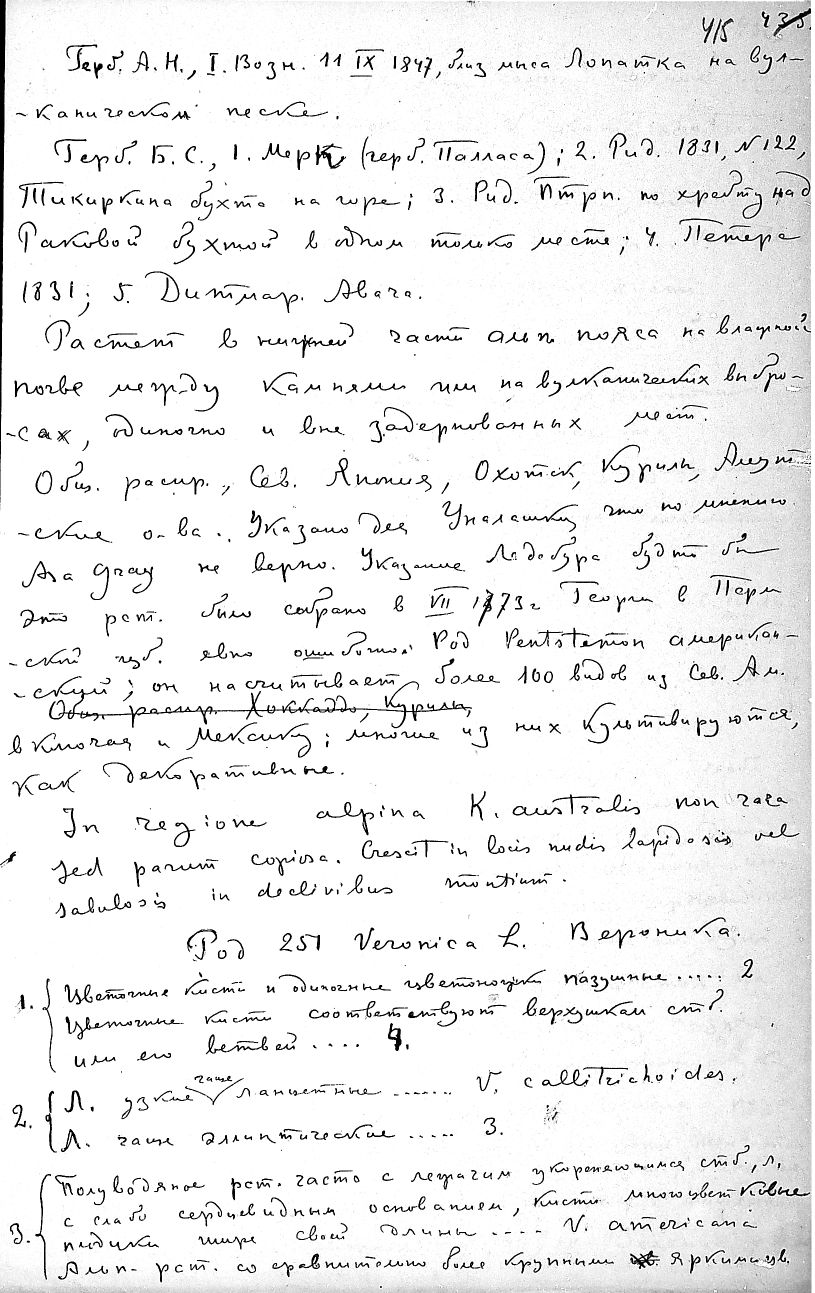 415 435.
Герб. А.Н., I. Возн. 11 IX 1847, близ мыса Лопатка на вул-
-каническом песке.
Герб. Б.С., 1. Мерк. (герб. Палласа); 2. Рид. 1831, N 122,
Тикиркина бухта на горе; 3. Рид. Птрп. по хребту над
Раковой бухтой в одном только месте; 4. Петерс
1831; 5. Дитмар. Авача.
Растет в нижней части альп. пояса на влажной
почве между камнями или на вулканических выбро-
-сах, одиночно и вне задернованных мест.
Общ. распр., Сев. Япония, Охотск, Курилы, Алеут-
-ские о-ва. Указано для Уналашки что по мнению
Asa Gray не верно. Указание Ледебура будто бы
это рст. было собрано в VII 1773 г Георги в Перм
-ской губ. явно ошибочно. Род Pentstemon американ-
-ский; он насчитывает более 100 видов из Сев. Ам.
Общ. распр. Хоккаддо, Курилы,
включая и Мексику; многие из них культивируются,
как декоративные.
In regione alpina K. australis non rara
sed parum copiosa. Crescit in locis nudis lapidosis vel
sabulosis in declivibus montium.
Род 251 Veronica L. Вероника.
1. Цветочные кисти и одиночные цветоножки пазушные ..... 2
Цветочные кисти соответствуют верхушкам стб.
или его ветвей .... 4.
2. Л. узкие чаще ланцетные ...... V. callitrichoides.
Л. чаще эллиптические ..... 3.
3. Полуводяное рст. часто с лежачим укореняющимся стб., л.
с слабо сердцевидным основанием, кисти многоцветковые
шире своей длины .... V. americana
Альп. рст. со сравнительно более крупными яркими цв.